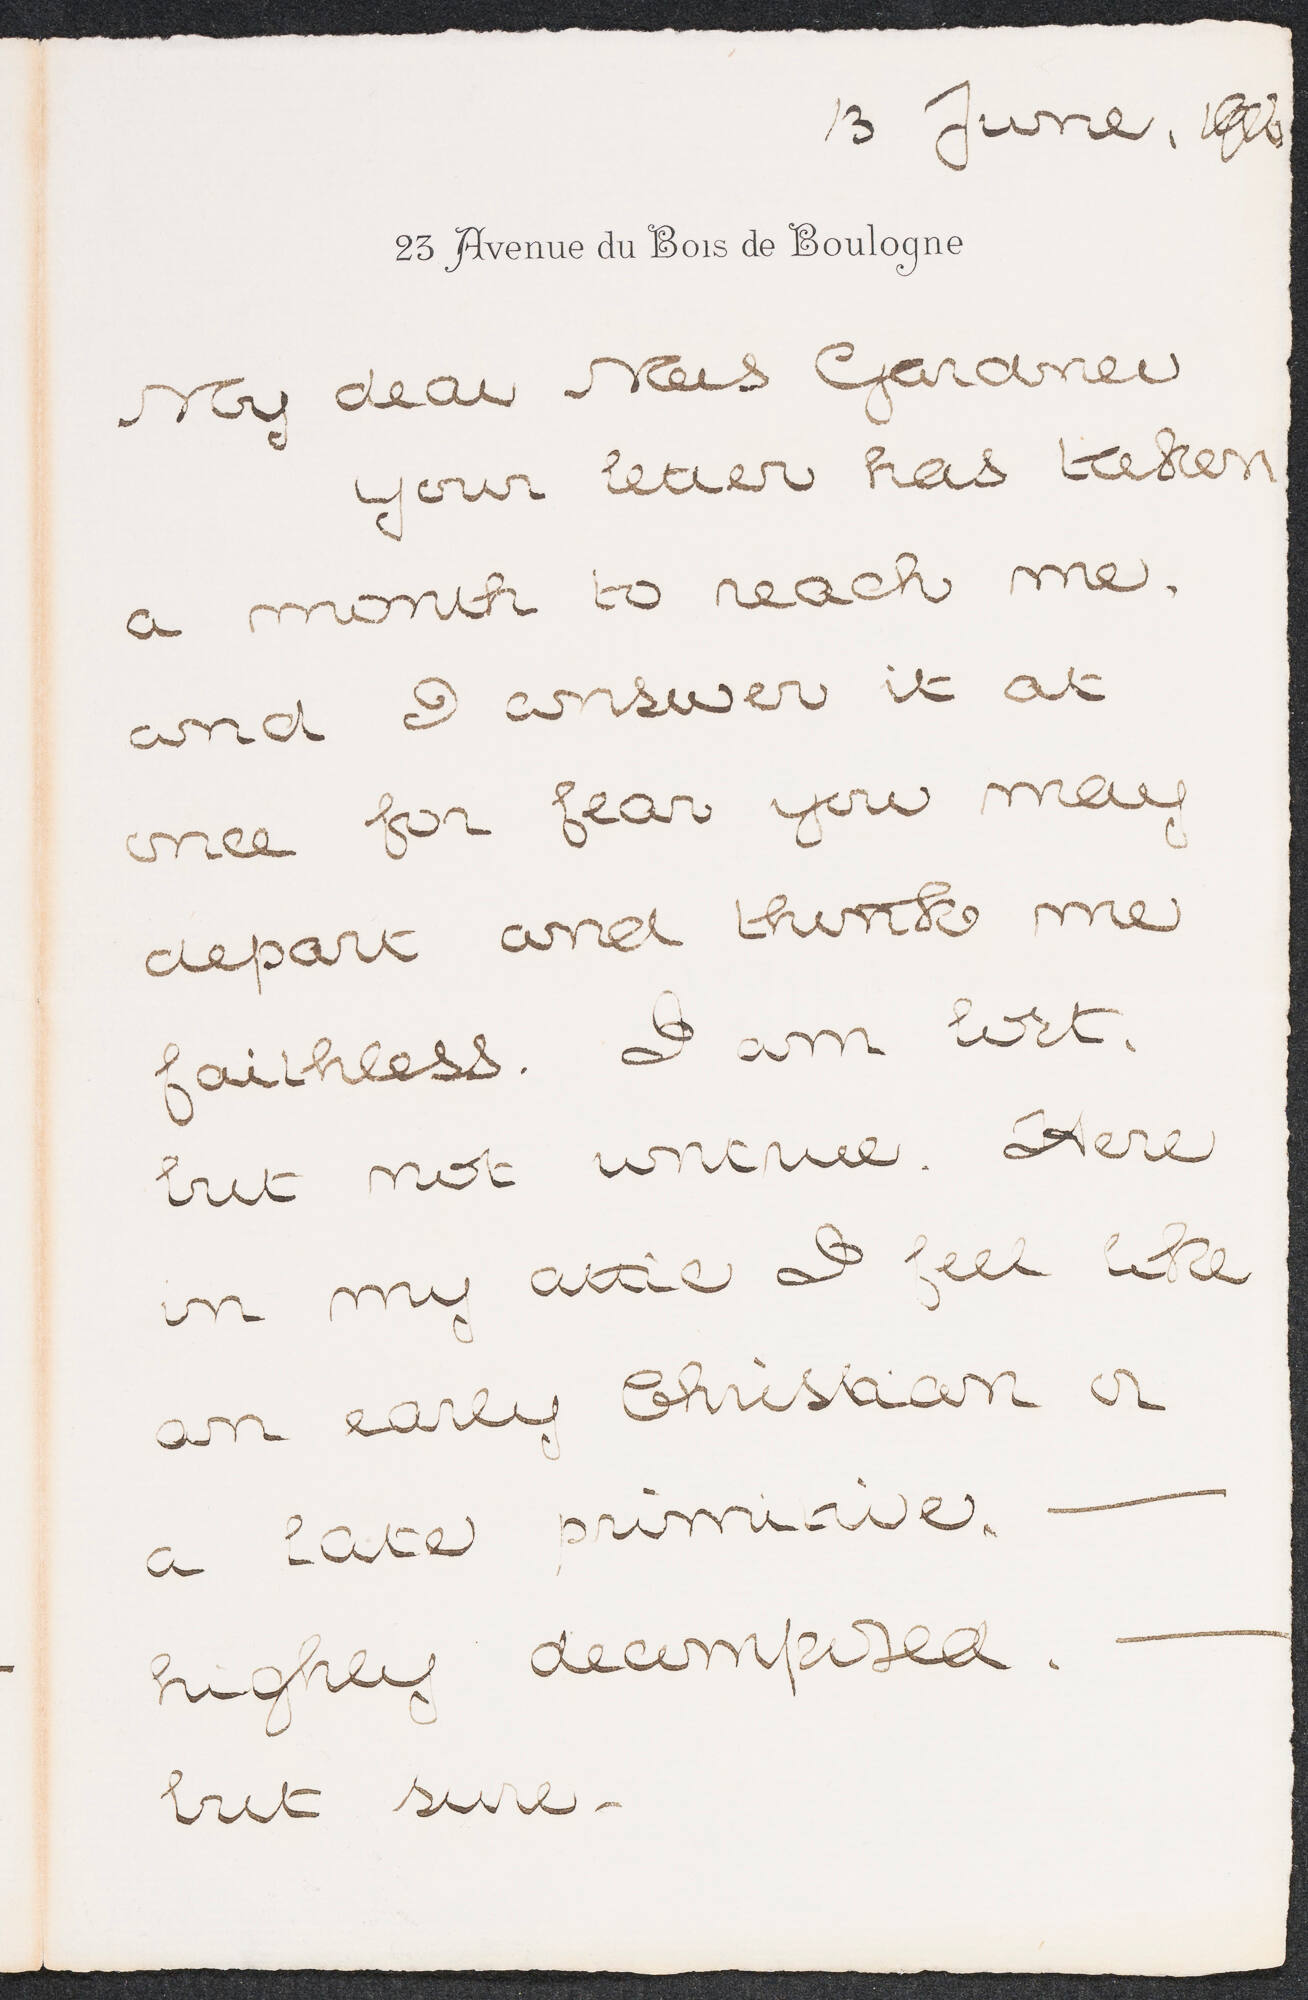 13 June, 1906
23 Avenue du Bois de Boulogne
My dear Mrs Gardner
your letter has taken
a month to reach me,
and I answer it at
once for fear you may
depart and think me
faithless. I am lost,
but not untrue. Here
in my attic I feel like
an early Christian or
a late primitive, —
highly decomposed, —
but sure.